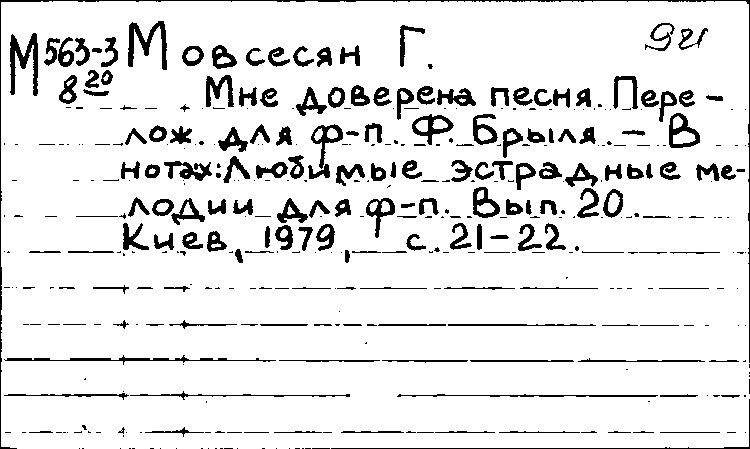 М 563-3 Мовсесян Г.
8 20
Мне доверена песня. Пере-
лож. для ф-п. Ф. Брыля. – В
нотах: Любимые эстрадные ме-
лодии для ф-п. Вып. 20.
Киев, 1979, с. 21-22.